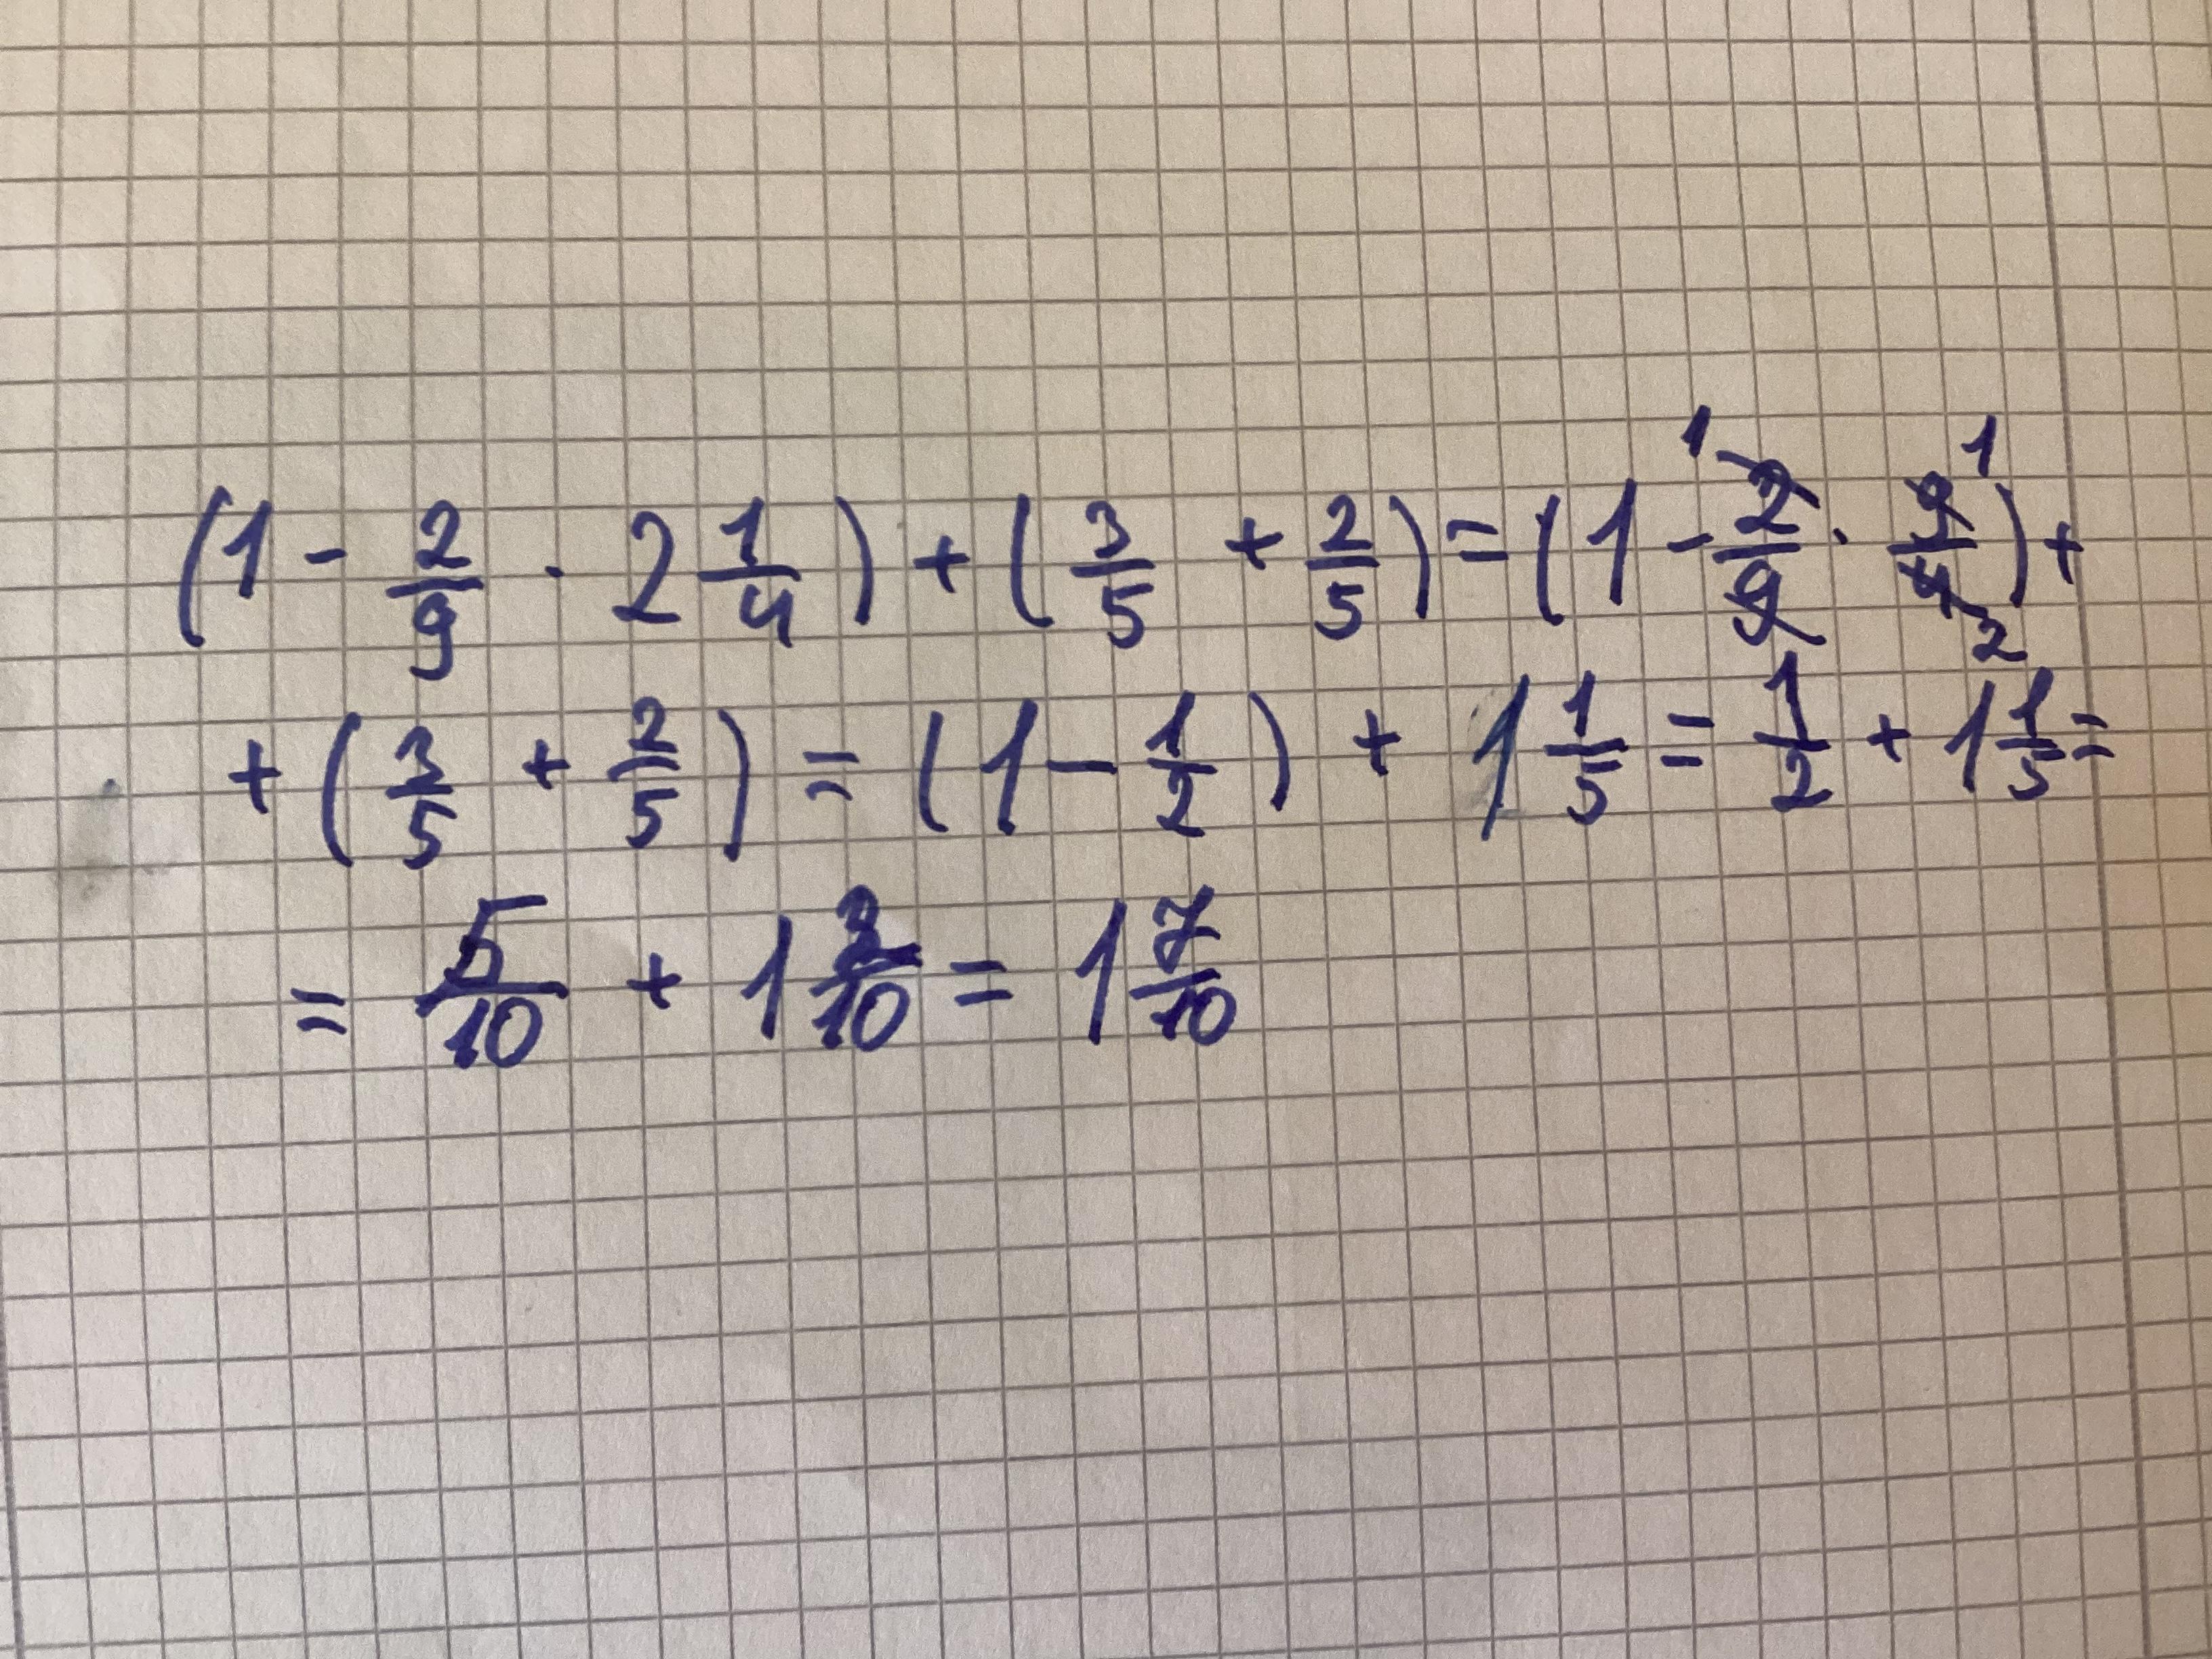 (1 - 2/9 · 2 1/4) + (3/5 + 2/5) = (1 - 2/9 · 9/4) + 1 1 2
+ (3/5 + 2/5) = (1 - 1/2) + 1 1/5 = 1/2 + 1 1/5 =
= 5/10 + 1 2/10 = 1 7/10